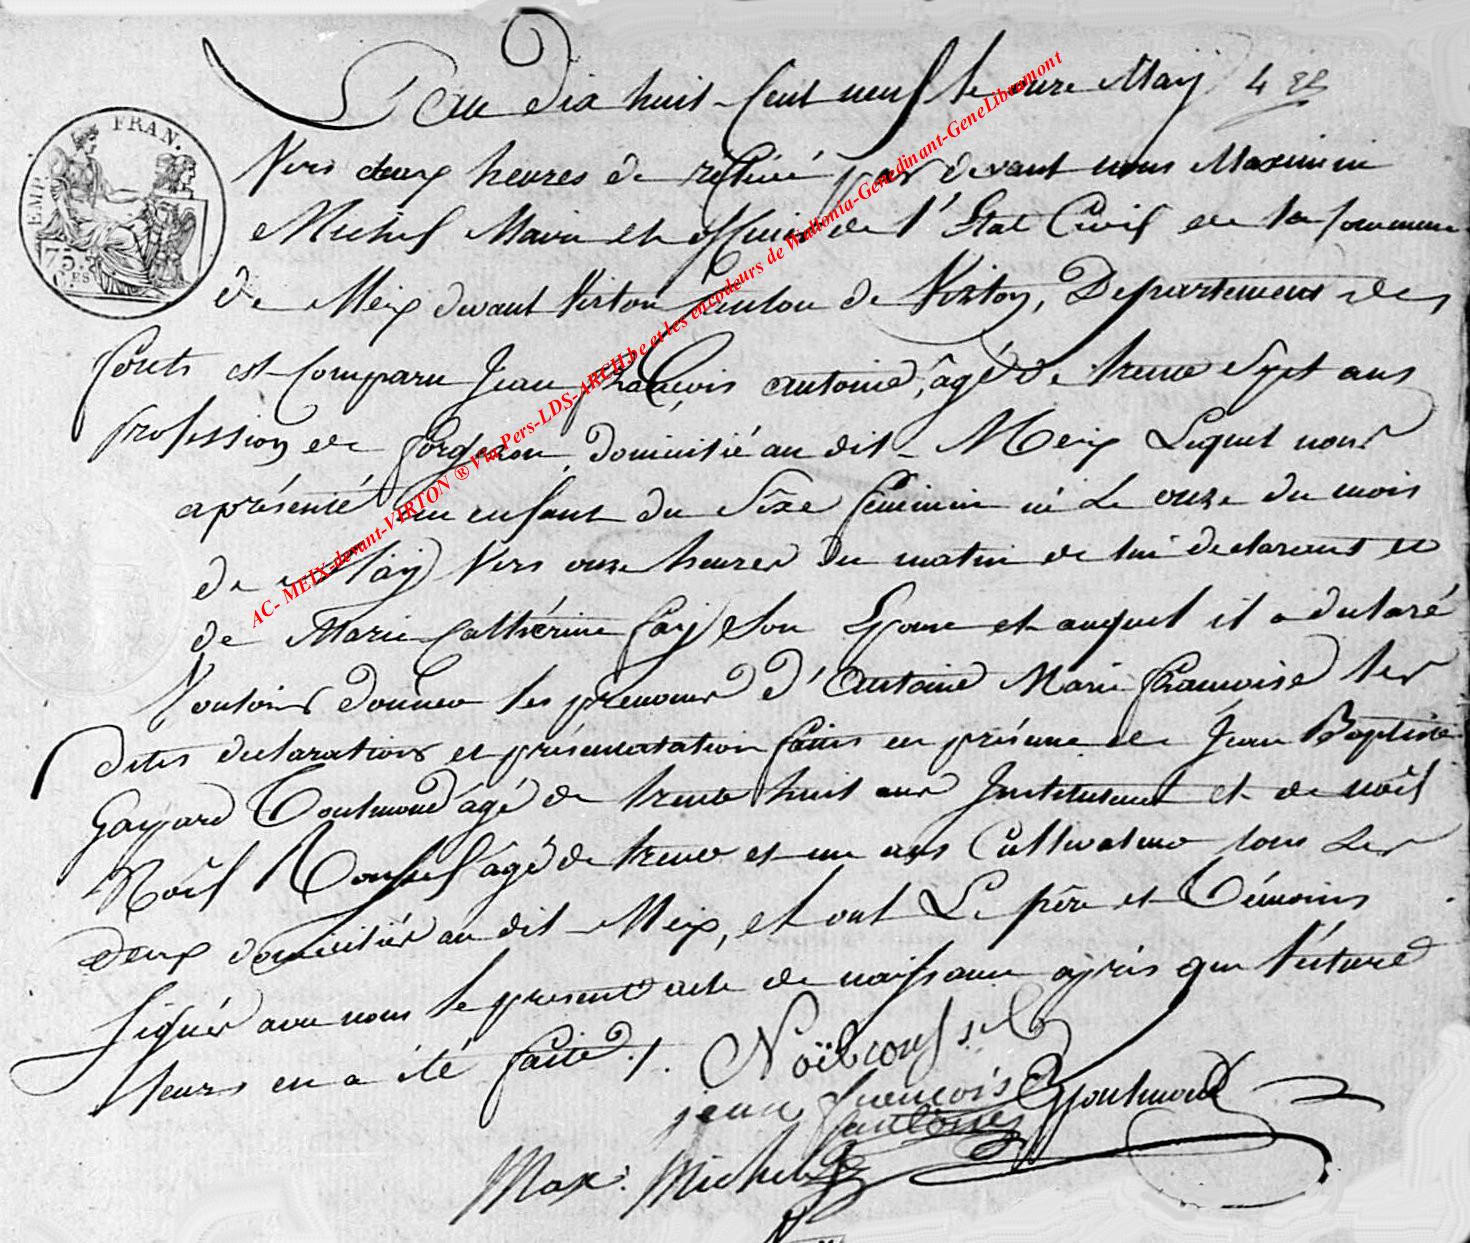 L'an dix huit Cent neuf le onze May 4
Vers deux heures de relevé par devant nous Maximin
Michel Maire et officier de l'Etat Civil de la Commune
de Meix devant Virton Canton de Virton, Departement des
forets est Comparu Jean François Antoine, âgé de trente Sept ans
profession de forgeron domicilié au dit Meix Lequel nous
a présenté un enfant du Sèxe féminin né Le onze du mois
de May Vers onze heures du matin de lui declarant et
de Marie Cathérine Gay Son Epouse et auquel il a declaré
Vouloir donner les prenoms d'Antoine Marie Françoise les
dites declarations et présentatation faites en présence de Jean Baptiste
Gaspard Toutmond âgé de trente huit ans Instituteur et de noël
Noël âgé de trente et un ans Cultivateur tous Les
deux domiciliés au dit Meix, et ont Le père et Témoins
Signés avec nous le present acte de naissance après que lecture
leurs en a été faite ./.
Noël
jean françois antoine
G Toutmond
Max: Michel
EMP. FRAN.
75. C.ES
AC- MEIX-devant-VIRTON ® Via Pers-LDS-ARCH.be et les encodeurs de Wallonia-Genedinant-GeneLibramont